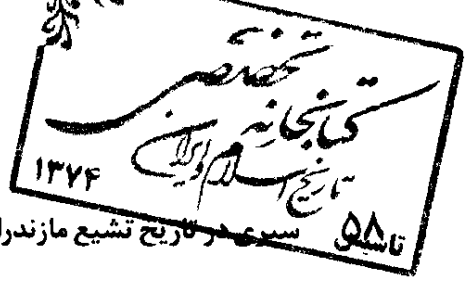 کتابخانه تخصصی
تاریخ اسلام و ایران
تاسیس ۱۳۷۴
۵۸ سیری در تاریخ تشیع مازندرا